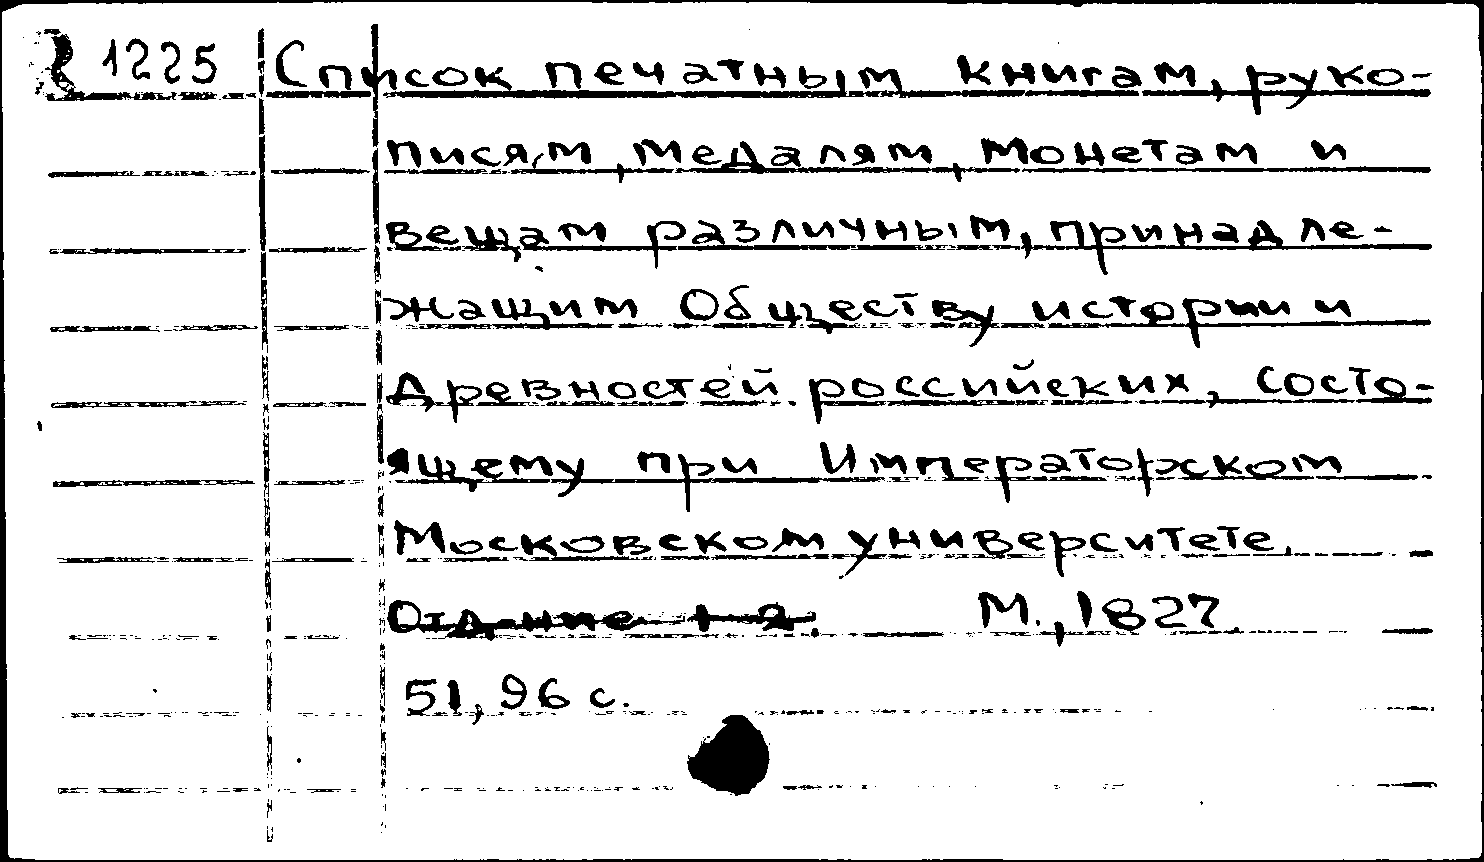 1225 Список печатным книгам, руко-
писям, медалям, монетам и
вещам различным, принадле-
жащим Обществу истории и
древностей российских, состо-
ящему при Императорском
Московском университете.
Отд-ние 1-2. М., 1827.
51, 96 с.